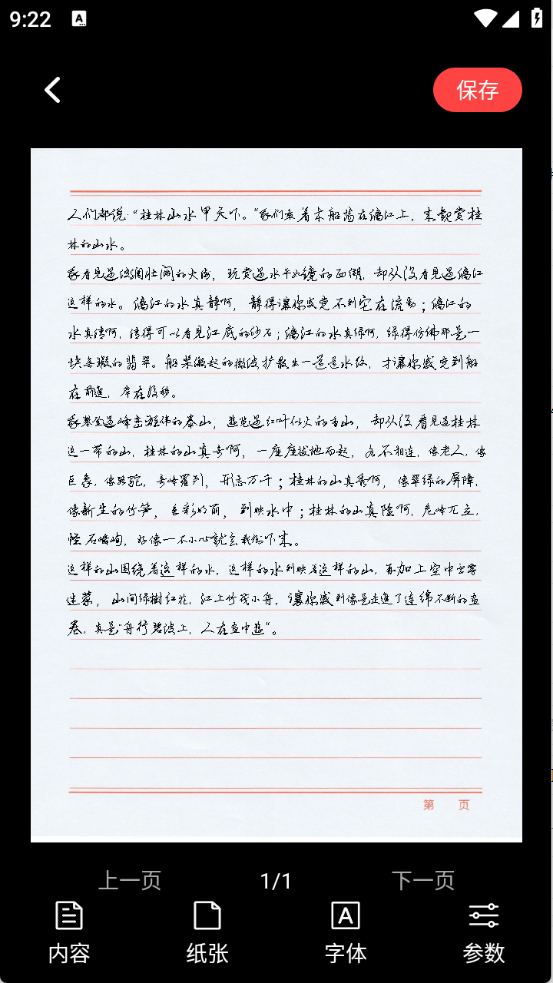 9:22
保存
人们都说"桂林山水甲天下。"我们乘着木船荡在漓江上，来观赏桂
林的山水。
我看见过波澜壮阔的大海，玩赏过水平如镜的西湖，却从没看见过漓江
这样的水。漓江的水真静啊，静得让你感觉不到它在流动；漓江的
水真清啊，清得可以看见江底的沙石；漓江的水真绿啊，绿得仿佛那是一
块无瑕的翡翠。船桨激起的微波扩散出一道道水纹，才让你感觉到船
在前进，岸在后移。
我攀登过峰峦雄伟的泰山，游览过红叶似火的香山，却从没看见过桂林
这一带的山，桂林的山真奇啊，一座座拔地而起，各不相连，像老人，像
巨象，像骆驼，奇峰罗列，形态万千；桂林的山真秀啊，像翠绿的屏障，
像新生的竹笋，色彩明丽，倒映水中；桂林的山真险啊，危峰兀立，
怪石嶙峋，好像一不小心就会栽倒下来。
这样的山围绕着这样的水，这样的水倒映着这样的山，再加上空中云雾
迷蒙，山间绿树红花，江上竹筏小舟，让你感到像是走进了连绵不断的画
卷，真是"舟行碧波上，人在画中游"。
第 页
上一页 1/1 下一页
内容 纸张 字体 参数